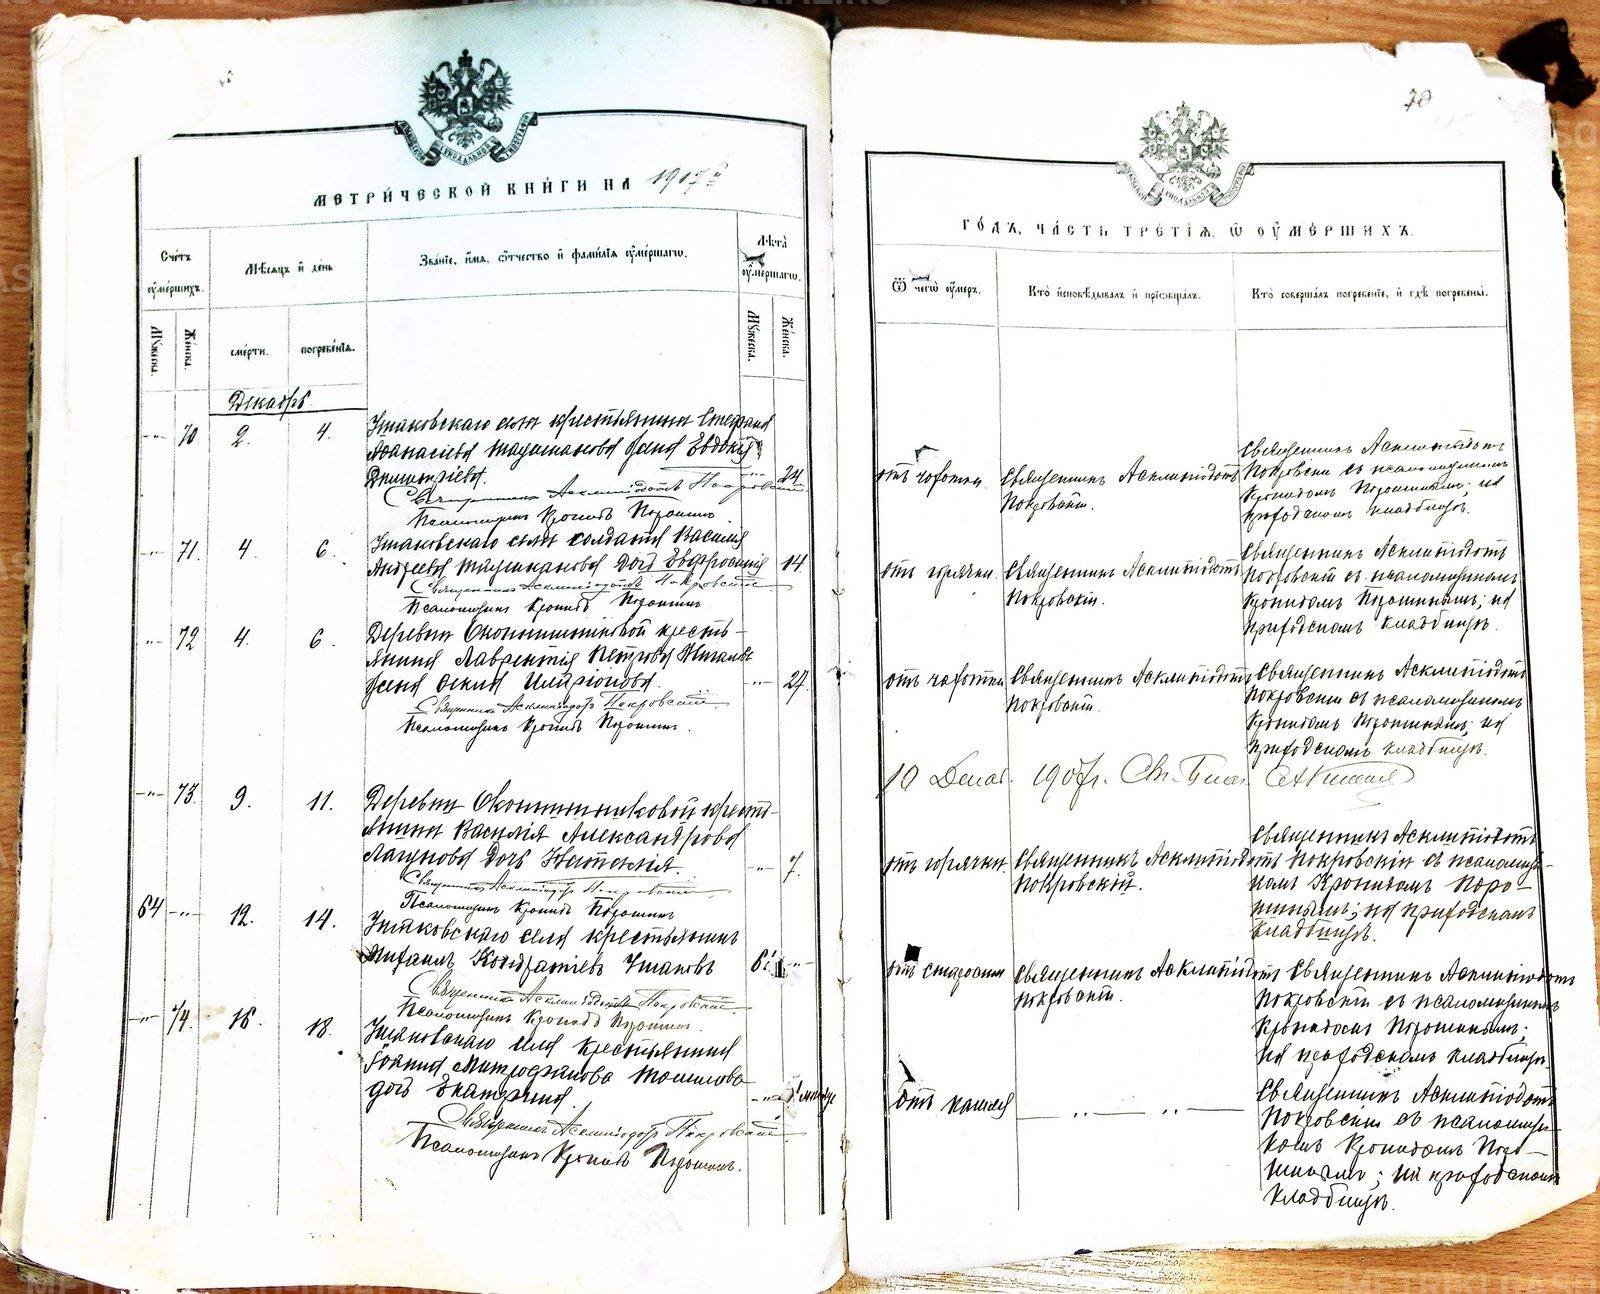 70
МЕТРИЧЕСКОЙ КНИГИ НА 1917 г.
ГОДЪ, ЧАСТЬ ТРЕТІЯ, Ѿ ОУМЕРШИХЪ.
Счетъ оумершихъ.
Мѣсяцъ и день
Званіе, имя, ѿтчество и фамилія оумершагѡ.
Лѣта оумершагѡ.
Мужеска.
Женска.
смерти.
погребенія.
Мужеска.
Женска.
Ѿ чегѡ оумеръ.
Кто исповѣдывалъ и пріобщалъ.
Кто совершалъ погребеніе, и гдѣ погребены.
Декабрь.
-„- 70 2. 4.
Ушаковскаго села крестьянина Стефана
Афанасіева жена Евдокія
Димитріева. -„- 24
Священникъ Асклипіодотъ Покровскій
Псаломщикъ Кронидъ Порошинъ
отъ чахотки.
Священникъ Асклипіодотъ
Покровскій.
Священникъ Асклипіодотъ
Покровскій съ псаломщикомъ
Кронидомъ Порошинымъ; на
приходскомъ кладбищѣ.
-„- 71 4. 6.
Ушаковскаго села солдата Василія
Андреева дочь Евфросинія 14
Священникъ Асклипіодотъ Покровскій
Псаломщикъ Кронидъ Порошинъ
отъ горячки
Священникъ Асклипіодотъ
Покровскій.
Священникъ Асклипіодотъ
Покровскій съ псаломщикомъ
Кронидомъ Порошинымъ; на
приходскомъ кладбищѣ.
-„- 72 4. 6.
Деревни кресть-
янина Лаврентія Петрова
жена Илиріонова. -„- 27.
Священникъ Асклипіодотъ Покровскій
Псаломщикъ Кронидъ Порошинъ.
отъ чахотки
Священникъ Асклипіодотъ
Покровскій.
Священникъ Асклипіодотъ
Покровскій съ псаломщикомъ
Кронидомъ Порошинымъ; на
приходскомъ кладбищѣ.
10 Декаб.
-„- 73. 9. 11.
Деревни кресть-
янина Василія Александрова
Лагунова дочь -„- 7.
Священникъ Асклипіодотъ Покровскій
Псаломщикъ Кронидъ Порошинъ
отъ горячки.
Священникъ Асклипіодотъ
Покровскій.
Священникъ Асклипіодотъ
Покровскій съ псаломщи-
комъ Кронидомъ Поро-
шинымъ; на приходскомъ
кладбищѣ.
64 -„- 12. 14.
Ушаковскаго села крестьянинъ
Михаилъ Кондратіевъ Ушаковъ -„-
Священникъ Асклипіодотъ Покровскій
Псаломщикъ Кронидъ Порошинъ.
отъ старости
Священникъ Асклипіодотъ
Покровскій.
Священникъ Асклипіодотъ
Покровскій съ псаломщикомъ
Кронидомъ Порошинымъ;
на приходскомъ кладбищѣ.
-„- 74. 16. 18.
Ушаковскаго села крестьянина
Іоанна Митрофанова
дочь Екатерина. -„-
Священникъ Асклипіодотъ Покровскій
Псаломщикъ Кронидъ Порошинъ.
отъ кашля
— „ — „ —
Священникъ Асклипіодотъ
Покровскій съ псаломщи-
комъ Кронидомъ Поро-
шинымъ; на приходскомъ
кладбищѣ.